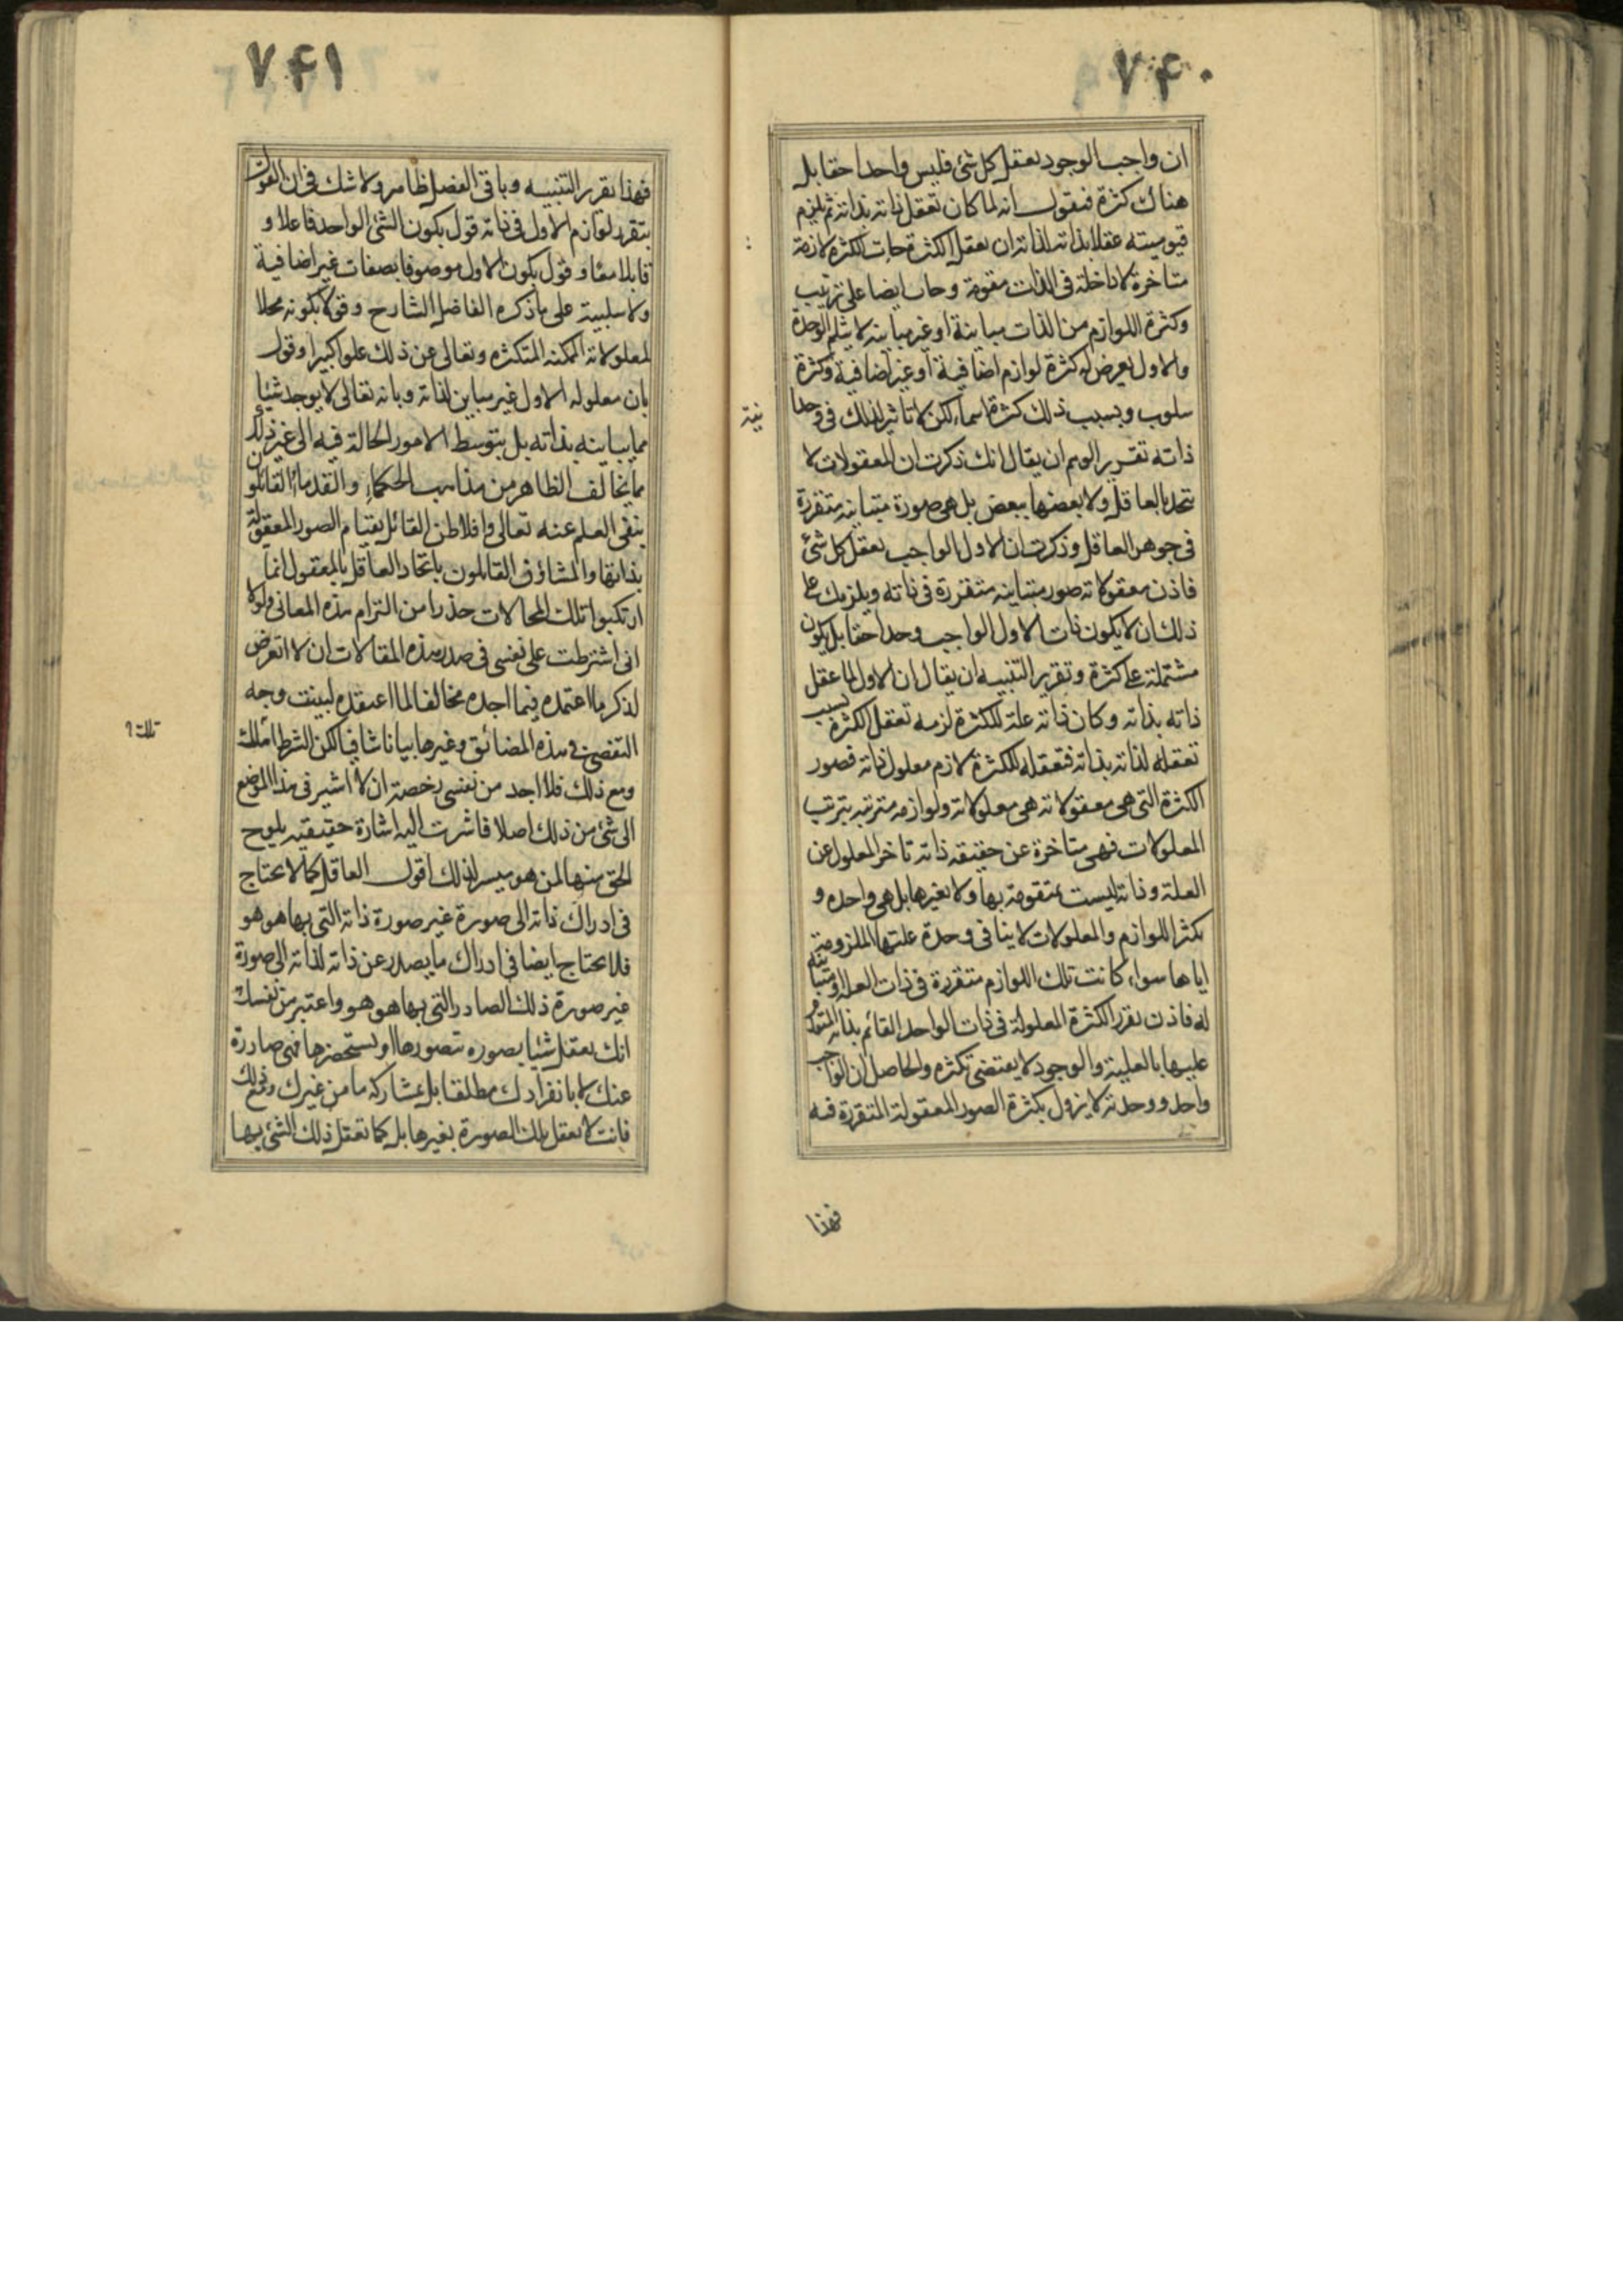 ۷۴۰
ان واجب الوجود يعقل كل شئ فليس واحدا حقا بل
هناك كثرة فنقول انه لما كان تعقل ذاته بذاته ثم يلزم
قيوميته عقلا بذاته لذاته ان يعقل الكثرة جات الكثرة لازمة
متاخرة لا داخلة فى الذات مقومة وجات ايضا على ترتيب
وكثرة اللوازم من الذات مباينة او غير مباينه لا يثلم الوحدة
والاول يعرض له كثرة لوازم اضافية او غير اضافية وكثرة
سلوب وبسبب ذلك كثرة اسماء لكن لا تاثير لذلك فى وحدا
نية
ذاته تقرير الوهم ان يقال انك ذكرت ان المعقولات لا
يتحد بالعاقل ولا بعضها ببعض بل هى صورة متباينه متقررة
فى جوهر العاقل وذكرت ان الاول الواجب يعقل كل شئ
فاذن معقولاته صور متباينه متقررة فى ذاته ويلزمك على
ذلك ان لا يكون ذات الاول الواجب وحدا حقا بل يكون
مشتملة على كثرة وتقرير التنبيه ان يقال ان الاول لما عقل
ذاته بذاته وكان ذاته علة للكثرة لزمه تعقل الكثرة بسبب
تعقله لذاته بذاته فتعقله للكثرة لازم معلول ذاته فصور
الكثرة التى هى معقولاته هى معلولاته ولوازمه مترتبه بترتب
المعلولات فهى متاخرة عن حقيقه ذاته تاخر المعلول عن
العلة وذاته ليست بمتقومة بها ولا بغيرها بل هى واحده و
تكثر اللوازم والمعلولات لا ينافى وحدة علتها الملزومة
اياها سواء كانت تلك اللوازم متقررة فى ذات العلة او متباينه
له فاذن تقرر الكثرة المعلولة فى ذات الواحد القائم بذاته المتقدم
عليها بالعلية والوجود لا يقتضى تكثره والحاصل ان الواجب
واحد ووحدته لا يزول بكثرة الصور المعقولة المتقررة فيه
فهذا
۷۴۱
فهذا تقرير التنبيه وباقى الفصل ظاهر ولا شك فى ان القول
بتقرر لوازم الاول فى ذاته قول بكون الشئ الواحد فاعلا و
قابلا معا وقول بكون الاول موصوفا بصفات غير اضافية
ولا سلبية على ما ذكره الفاضل الشارح وقول بكونه محلا
لمعلولاته الممكنه المتكثره وتعالى عن ذلك علوا كبيرا وقول
بان معلوله الاول غير مباين لذاته وبانه تعالى لا يوجد شيئا
مما يباينه بذاته بل بتوسط الامور الحالة فيه الى غير ذلك
مما يخالف الظاهر من مذاهب الحكماء والقدماء القائلون
بنفى العلم عنه تعالى وافلاطن القائل بقيام الصور المعقولة
بذاتها والمشاؤن القائلون باتحاد العاقل بالمعقول انما
ارتكبوا تلك المحالات حذرا من التزام هذه المعانى ولولا
انى اشترطت على نفسى فى صدر هذه المقالات ان لا اتعرض
لذكر ما اعتمده فيما اجده مخالفا لما اعتقده لبينت وجه
التفصى فى هذه المضائق وغيرها بيانا شافيا لكن الشرط املك
ومع ذلك فلا اجد من نفسى رخصة ان لا اشير فى هذا الموضع
الى شئ من ذلك اصلا فاشرت اليه اشارة حقيقيه يلوح
الحق منها لمن هو ميسر لذلك اقول العاقل كما لا يحتاج
فى ادراك ذاته الى صورة غير صورة ذاته التى بها هو هو
فلا يحتاج ايضا فى ادراك ما يصدر عن ذاته لذاته الى صورة
غير صورة ذلك الصادر التى بها هو هو واعتبر من نفسك
انك تعقل شيئا بصوره تتصورها او يستحضرها فهى صادرة
عنك لا بانفرادك مطلقا بل بمشاركه ما من غيرك ومع ذلك
فانت لا تعقل تلك الصورة بغيرها بل كما تعقل ذلك الشئ بها